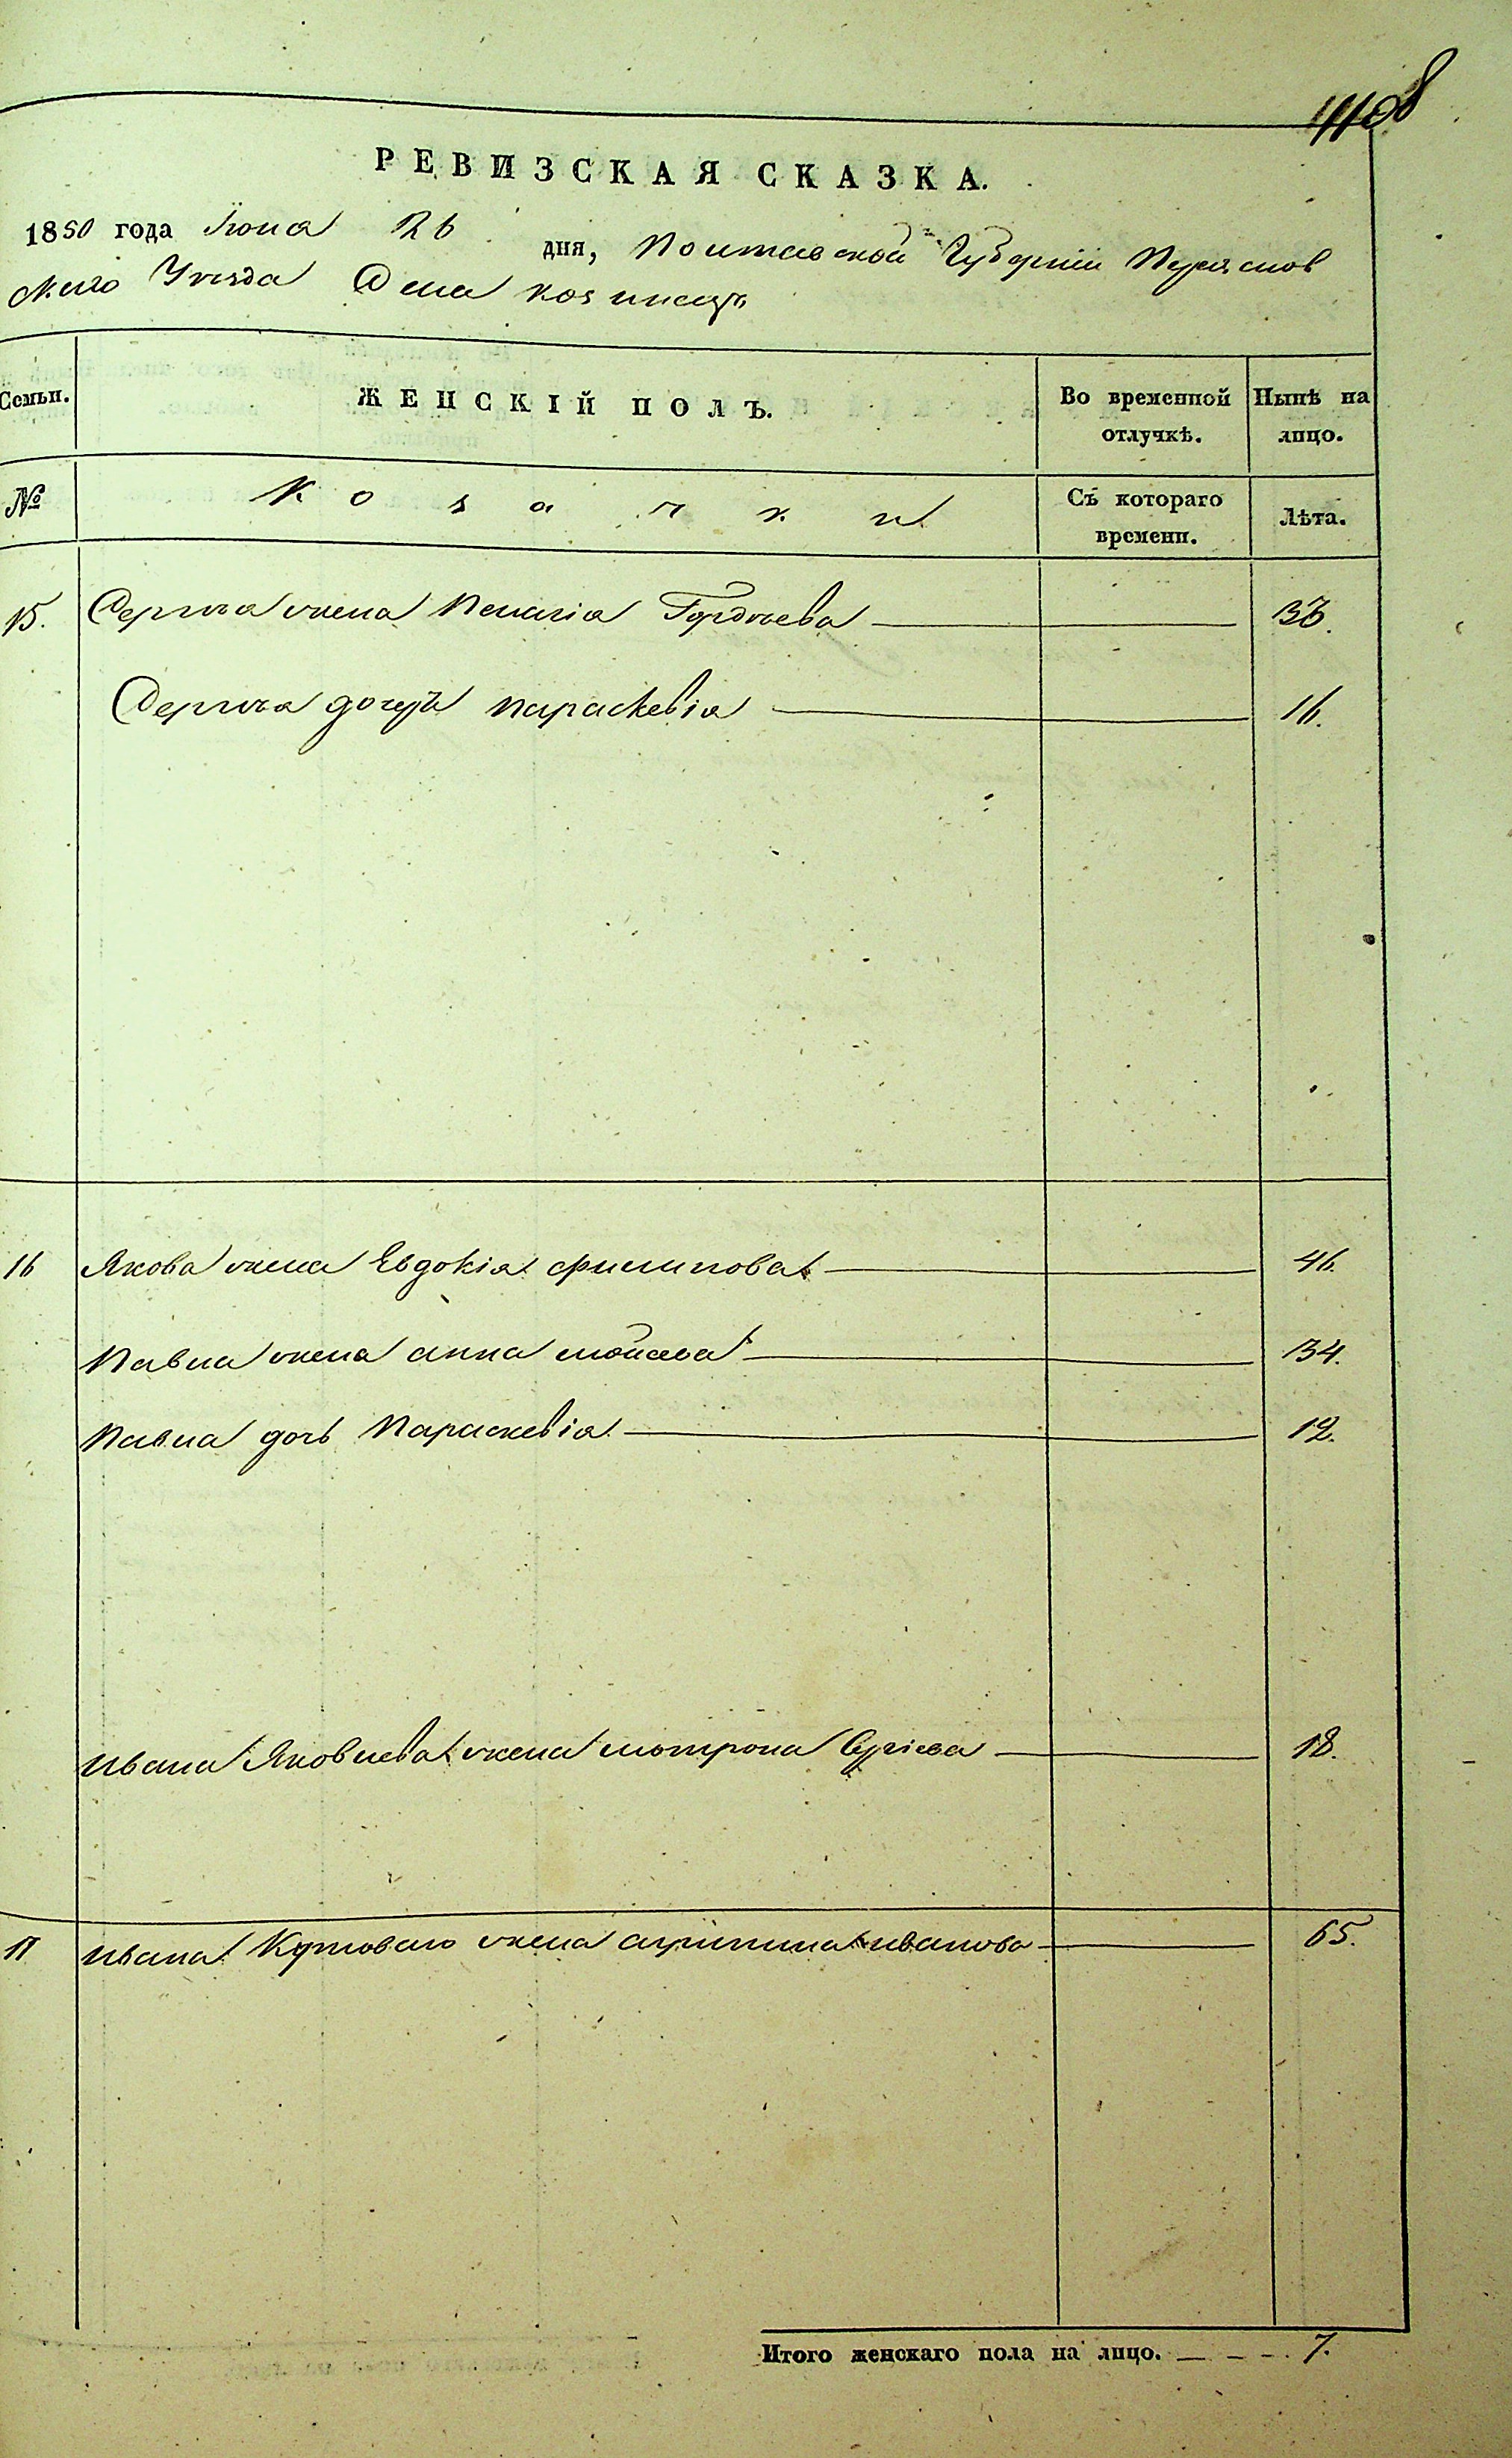 РЕВИЗСКАЯ СКАЗКА.
1850 года Іюня 26 дня, Полтавской Губерніи Переяслов
скаго Уезда Села Козинецъ
Семьи. ЖЕНСКІЙ ПОЛЪ. Во временной отлучкѣ. Нынѣ на лицо.
№ Козачки Съ котораго времени. Лѣта.
15. Сергѣя жена Пелагія Гордѣева 36.
Сергѣя дочерь Параскевія 16.
16 Якова жена Евдокія Филипова 46.
Павла жена Анна Мойсеева 34.
Павла дочь Параскевія 12.
Ивана Яковлева жена Мотрона Сергіева 18.
17 Ивана Кутоваго жена Агрипина Иванова 65.
Итого женскаго пола на лицо. 7.